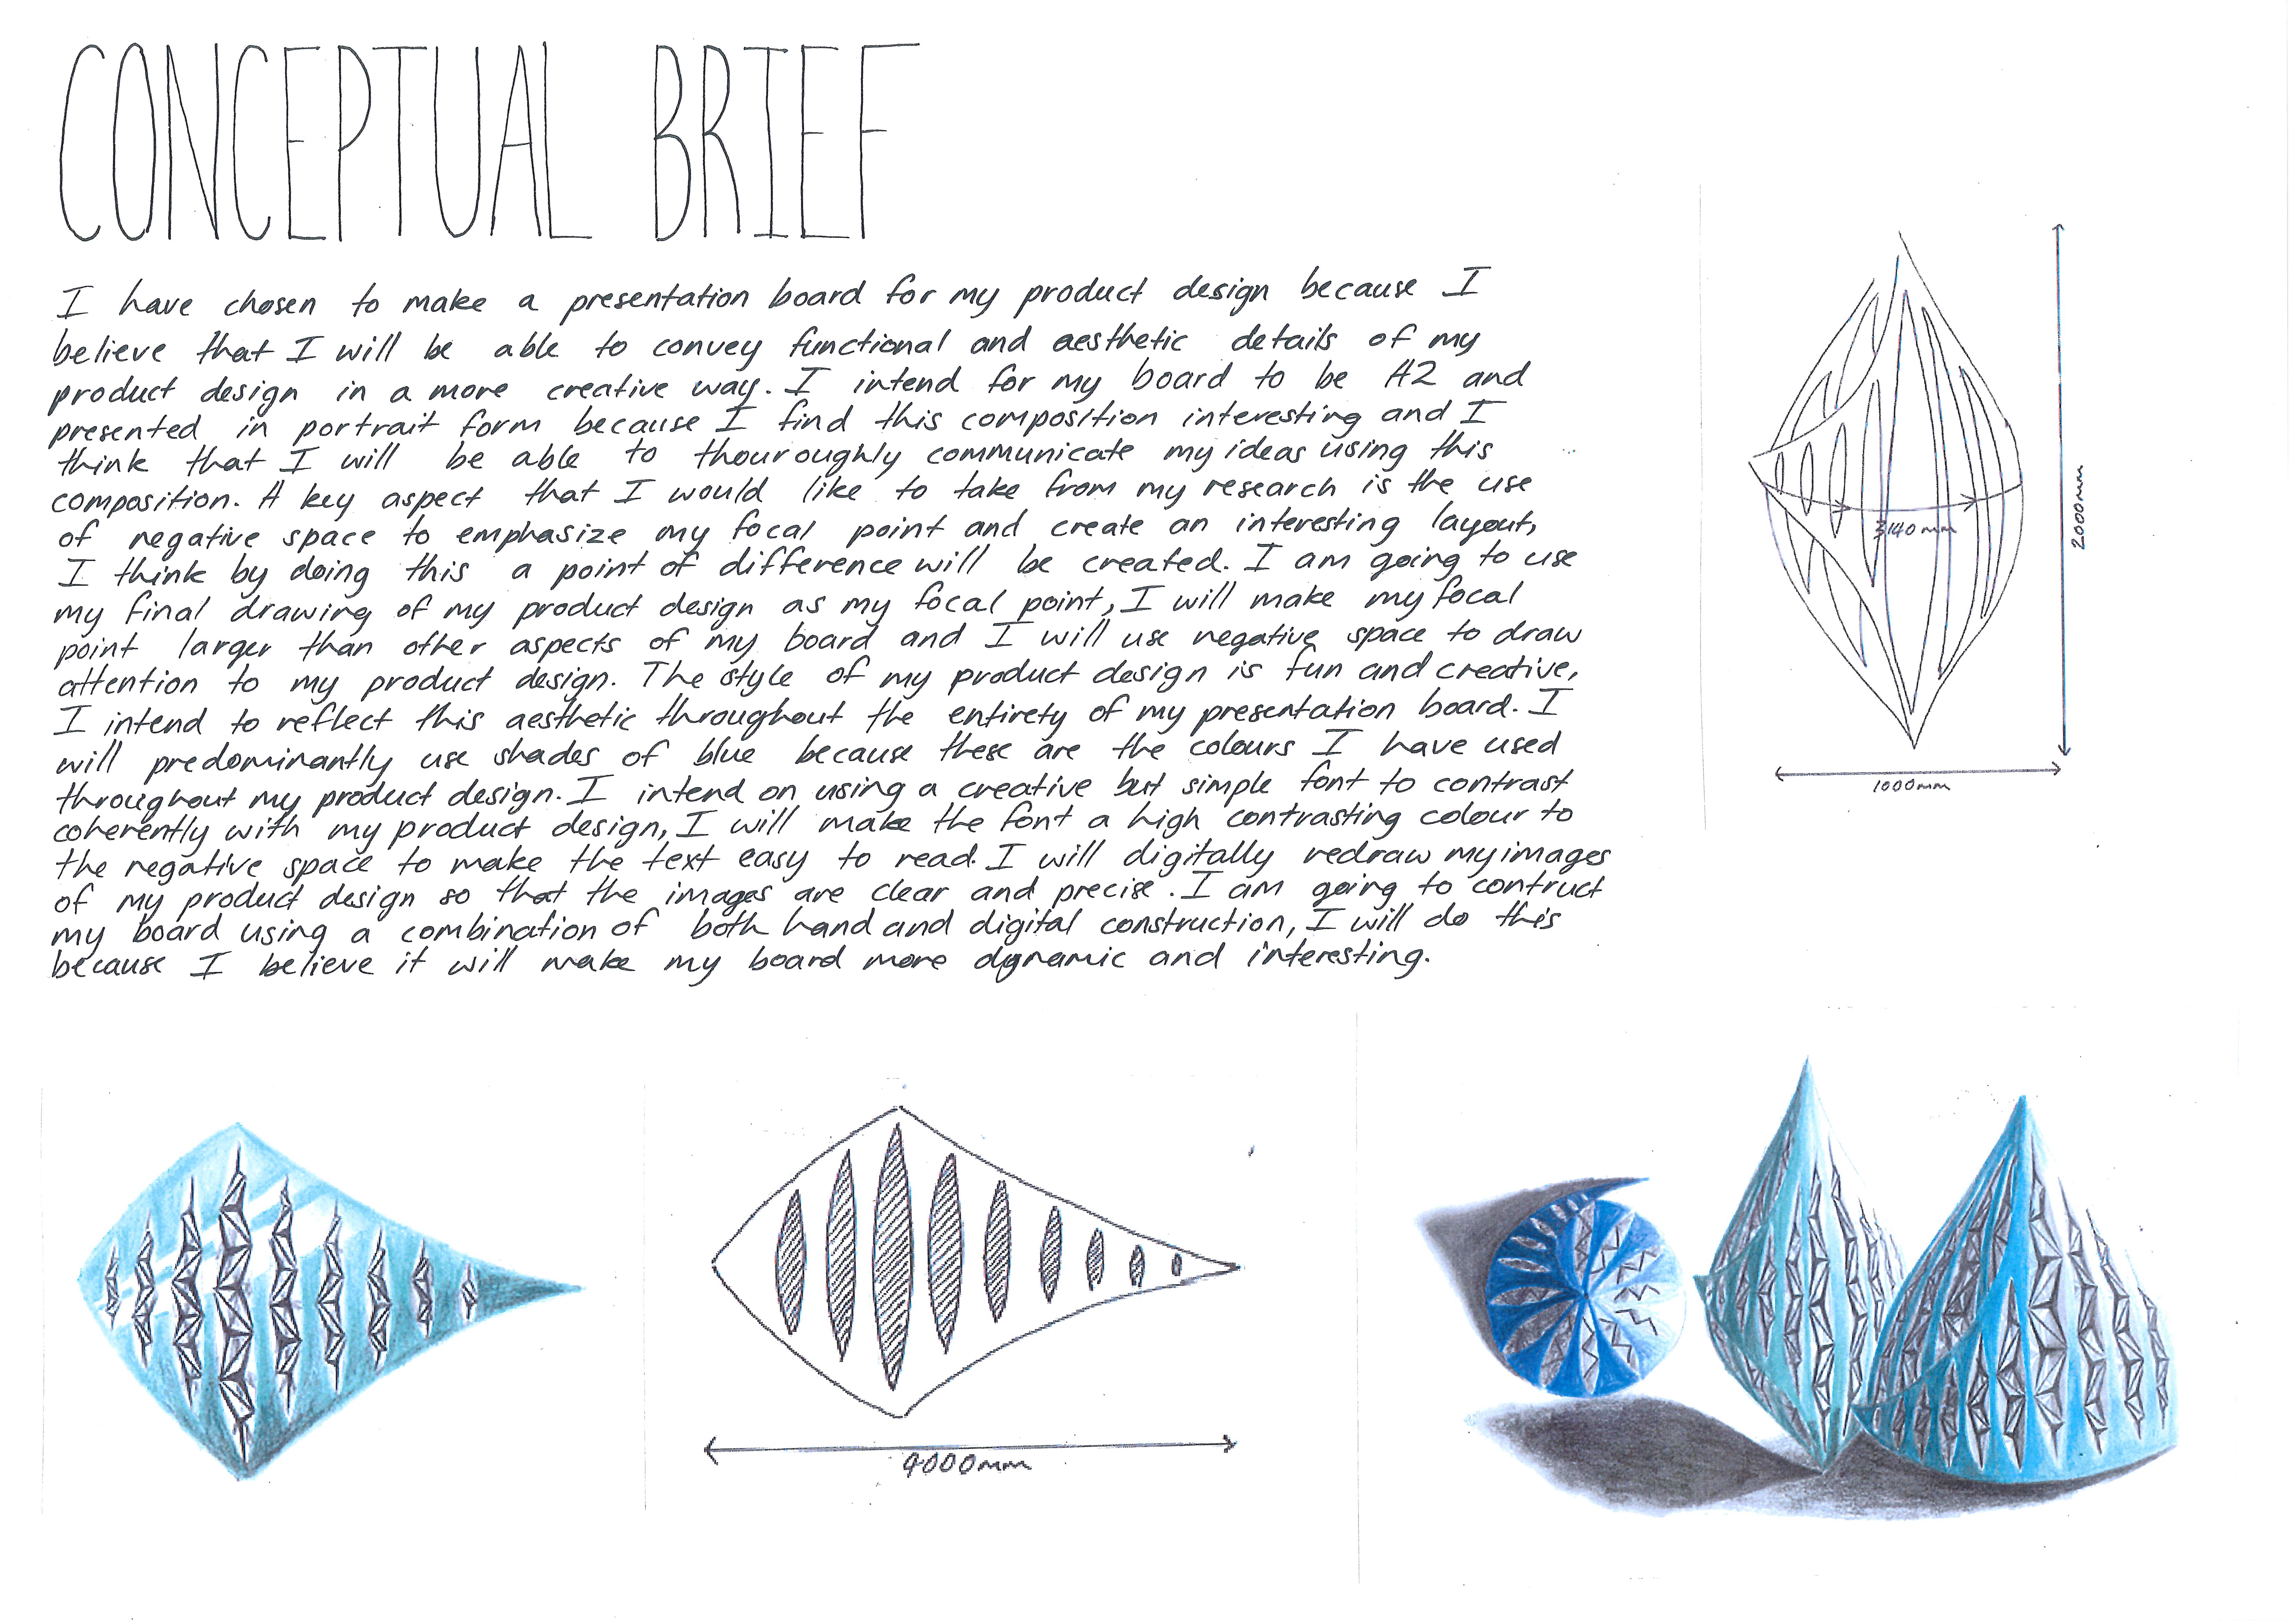 CONCEPTUAL BRIEF
I have chosen to make a presentation board for my product design because I
believe that I will be able to convey functional and aesthetic details of my
product design in a more creative way. I intend for my board to be A2 and
presented in portrait form because I find this composition interesting and I
think that I will be able to thouroughly communicate my ideas using this
composition. A key aspect that I would like to take from my research is the use
of negative space to emphasize my focal point and create an interesting layout,
I think by doing this a point of difference will be created. I am going to use
my final drawing of my product design as my focal point, I will make my focal
point larger than other aspects of my board and I will use negative space to draw
attention to my product design. The style of my product design is fun and creative,
I intend to reflect this aesthetic throughout the entirety of my presentation board. I
will predominantly use shades of blue because these are the colours I have used
throughout my product design. I intend on using a creative but simple font to contrast
coherently with my product design, I will make the font a high contrasting colour to
the negative space to make the text easy to read. I will digitally redraw my images
of my product design so that the images are clear and precise. I am going to contruct
my board using a combination of both hand and digital construction, I will do this
because I believe it will make my board more dynamic and interesting.
3140mm
2000mm
1000mm
4000mm